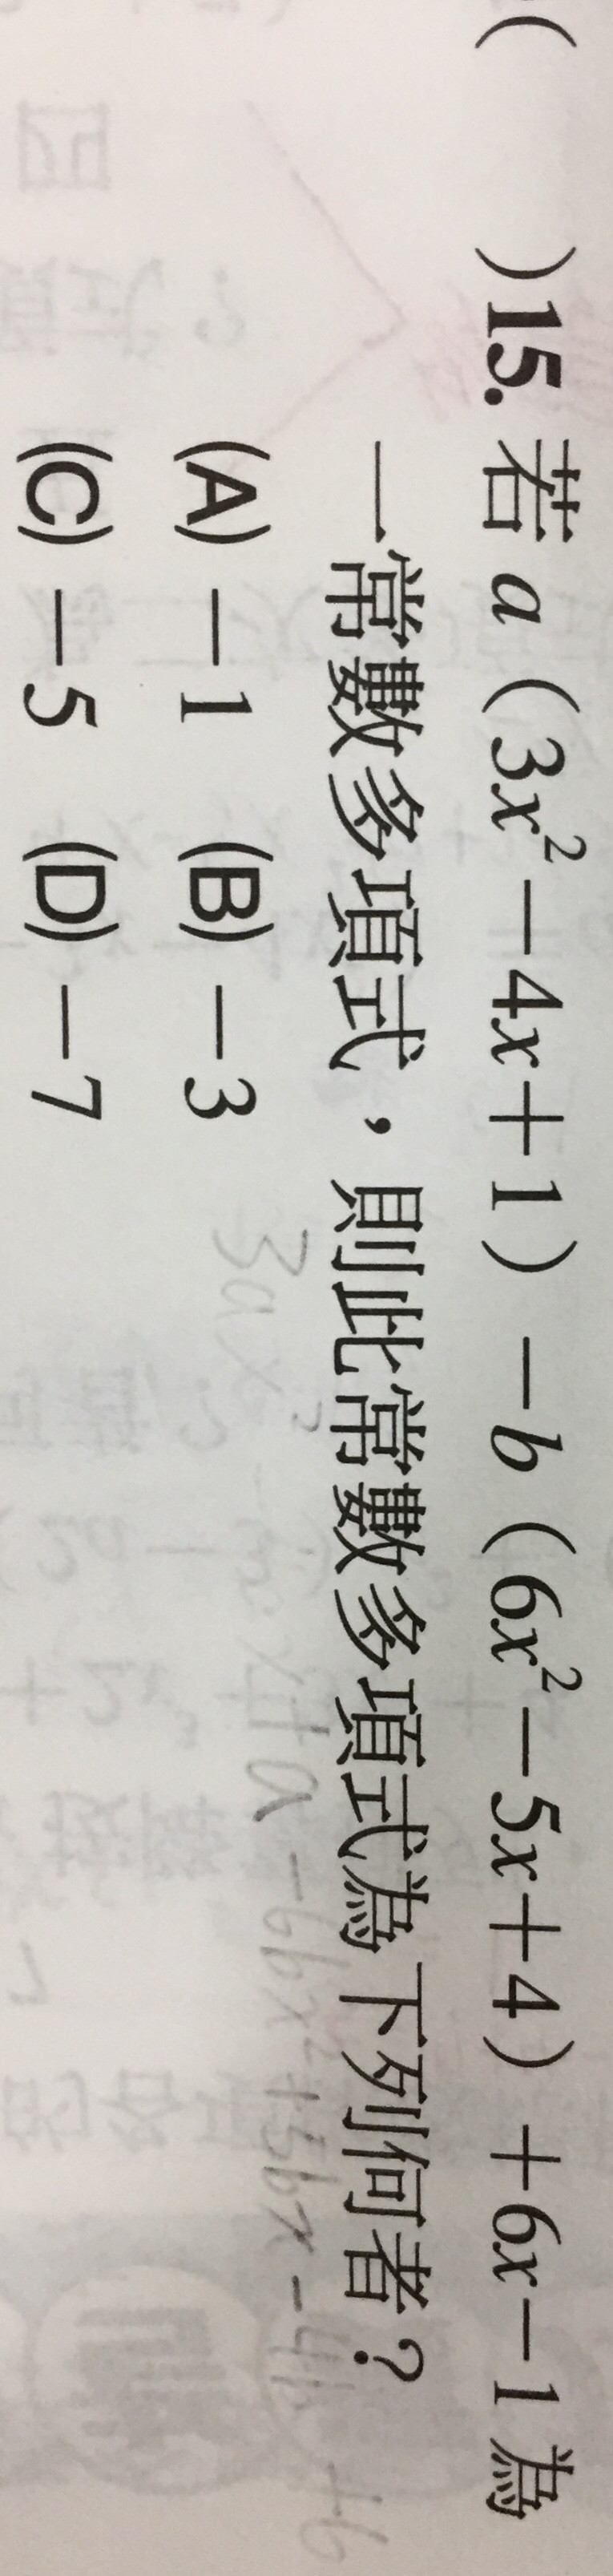 ( )15. 若 a (3x²-4x+1) -b (6x²-5x+4) +6x-1 為
一常數多項式，則此常數多項式為下列何者？
(A) -1 (B) -3
(C) -5 (D) -7
3ax² x+a-6bx²+5bx-4b+6